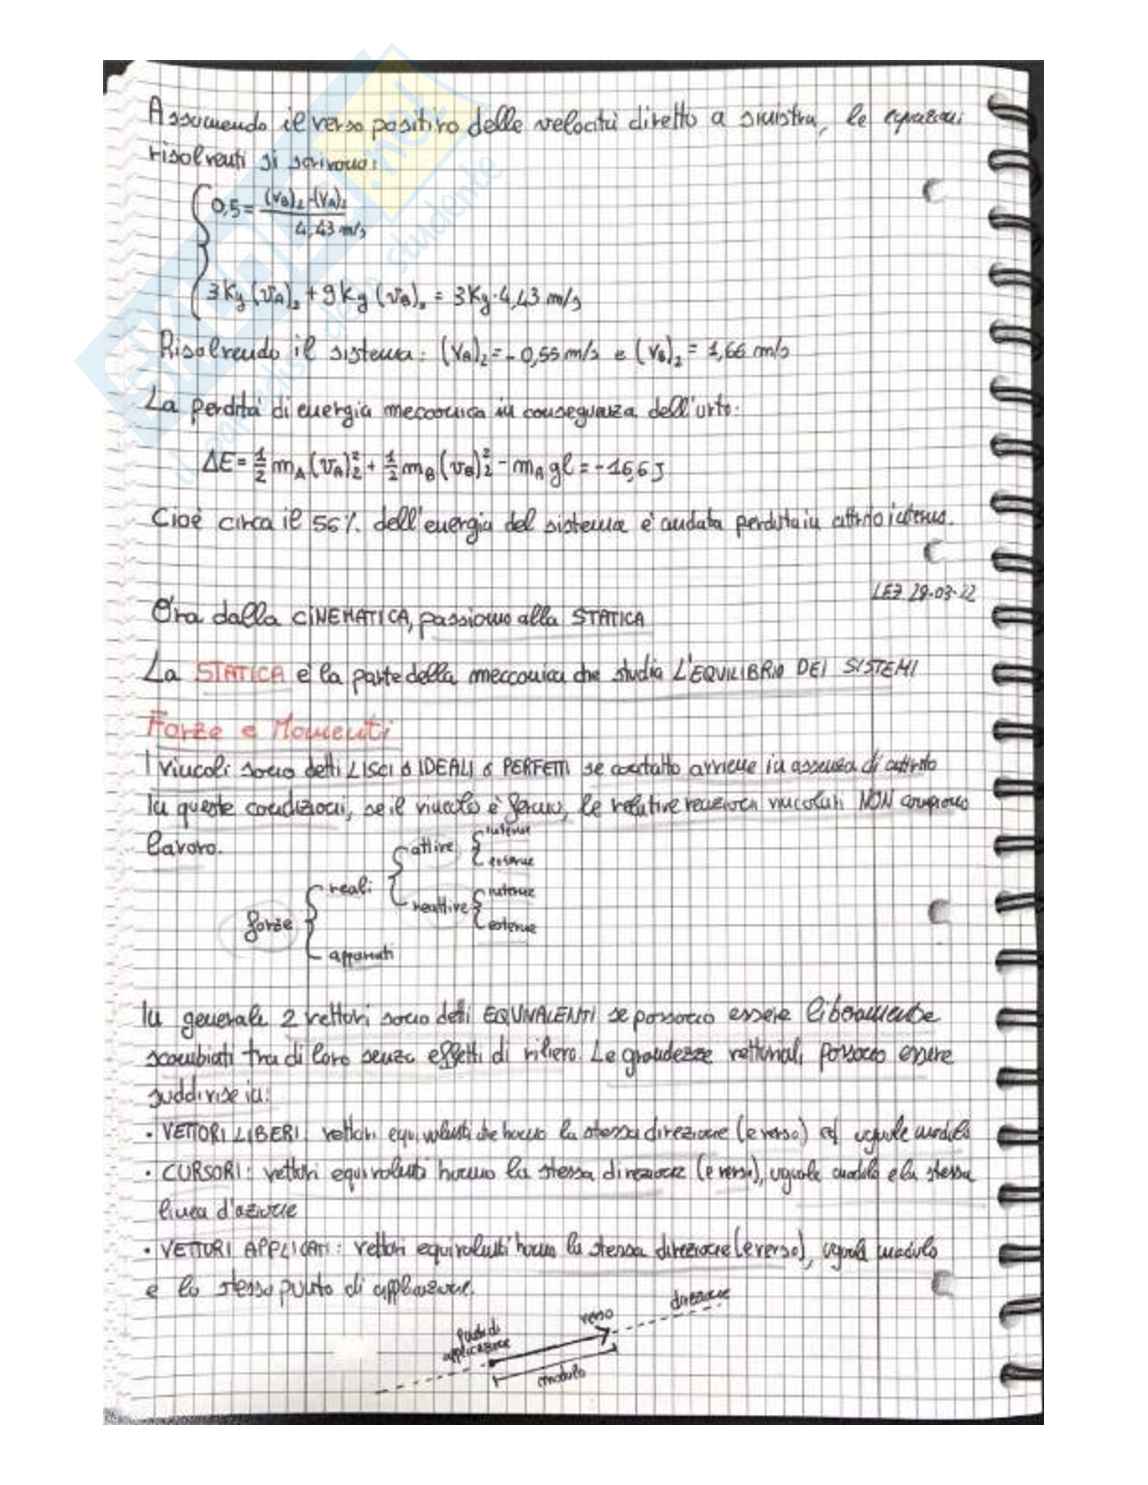 Assumendo il verso positivo delle velocità diretto a sinistra, le equazioni
risolventi si scrivono:
0,5 = (vB)2-(vA)2 / 4,43 m/s
3Kg (vA)2 + 9Kg (vB)2 = 3Kg·4,43 m/s
Risolvendo il sistema: (vA)2 = -0,55 m/s e (vB)2 = 1,66 m/s
La perdita di energia meccanica in conseguenza dell'urto:
ΔE = 1/2 mA (vA)2² + 1/2 mB (vB)2² - mA gl = -16,6J
Cioè circa il 56% dell'energia del sistema è andata perduta in attrito interno.
LEZ. 29-03-22
Ora dalla CINEMATICA, passiamo alla STATICA
La STATICA è la parte della meccanica che studia L'EQUILIBRIO DEI SISTEMI
Forze e Momenti
I vincoli sono detti LISCI o IDEALI o PERFETTI se contatto avviene in assenza di attrito
In queste condizioni, se il vincolo è fermo, le relative reazioni vincolari NON compiono
lavoro.
forze
reali
attive
interne
esterne
reattive
interne
esterne
apparenti
In generale 2 vettori sono detti EQUIVALENTI se possono essere liberamente
scambiati tra di loro senza effetti di rilievo. Le grandezze vettoriali possono essere
suddivise in:
· VETTORI LIBERI: vettori equivalenti che hanno la stessa direzione (e verso) ed uguale modulo
· CURSORI: vettori equivalenti hanno la stessa direzione (e verso), uguale modulo e la stessa
linea d'azione
· VETTORI APPLICATI: vettori equivalenti hanno la stessa direzione (e verso), uguale modulo
e lo stesso punto di applicazione.
punto di
applicazione
verso
direzione
modulo